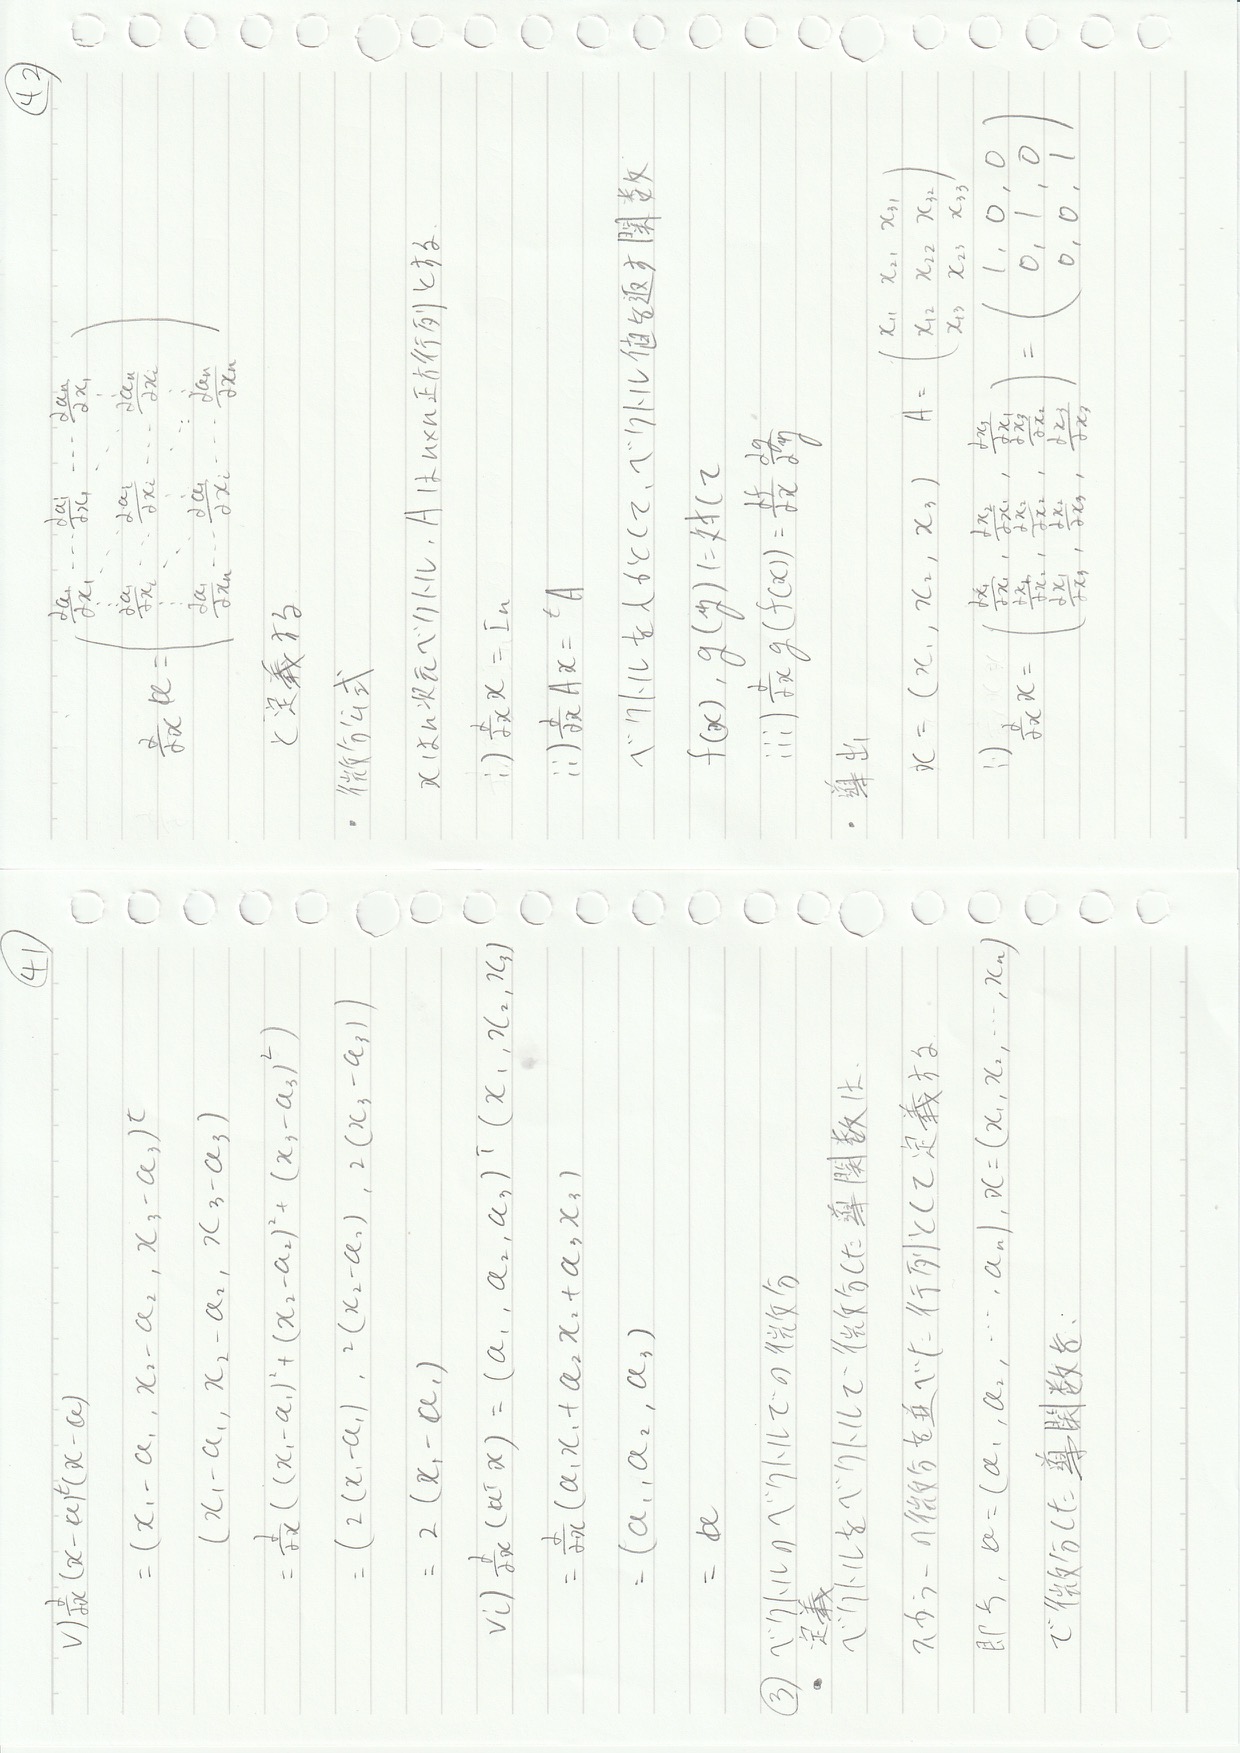 41
v) ∂/∂x (x-a)^t (x-a)
= (x₁-a₁, x₂-a₂, x₃-a₃)^t
(x₁-a₁, x₂-a₂, x₃-a₃)
= ∂/∂x ((x₁-a₁)²+(x₂-a₂)²+(x₃-a₃)²)
= (2(x₁-a₁), 2(x₂-a₂), 2(x₃-a₃))
= 2(x₁-a₁)
vi) ∂/∂x (a^T x) = (a₁, a₂, a₃)^T (x₁, x₂, x₃)
= ∂/∂x (a₁x₁+a₂x₂+a₃x₃)
= (a₁, a₂, a₃)
= a
③ ベクトルのベクトルでの微分
• 定義
ベクトルをベクトルで微分した導関数は.
スカラーの微分を並べた行列として定義する
即ち, a=(a₁, a₂, …, aₙ), x=(x₁, x₂, …, xₙ)
で微分した導関数を.
42
∂a₁/∂x₁ … ∂aᵢ/∂x₁ … ∂aₙ/∂x₁
∂/∂x a = ( ∂a₁/∂xᵢ … ∂aᵢ/∂xᵢ … ∂aₙ/∂xᵢ )
∂a₁/∂xₙ … ∂aᵢ/∂xᵢ … ∂aₙ/∂xₙ
と定義する
• 微分公式
xはn次元ベクトル, Aはn×n正方行列とする.
i) ∂/∂x x = Iₙ
ii) ∂/∂x Ax = ᵗA
ベクトルを入力として, ベクトル値を返す関数
f(x), g(y)に対して
iii) ∂/∂x g(f(x)) = ∂f/∂x ∂g/∂y
• 導出
x₁₁ x₂₁ x₃₁
x = (x₁, x₂, x₃) A = ( x₁₂ x₂₂ x₃₂ )
x₁₃ x₂₃ x₃₃
i) ∂x₁/∂x₁, ∂x₂/∂x₁, ∂x₃/∂x₁ 1, 0, 0
∂/∂x x = ( ∂x₁/∂x₂, ∂x₂/∂x₂, ∂x₃/∂x₂ ) = ( 0, 1, 0 )
∂x₁/∂x₃, ∂x₂/∂x₃, ∂x₃/∂x₃ 0, 0, 1